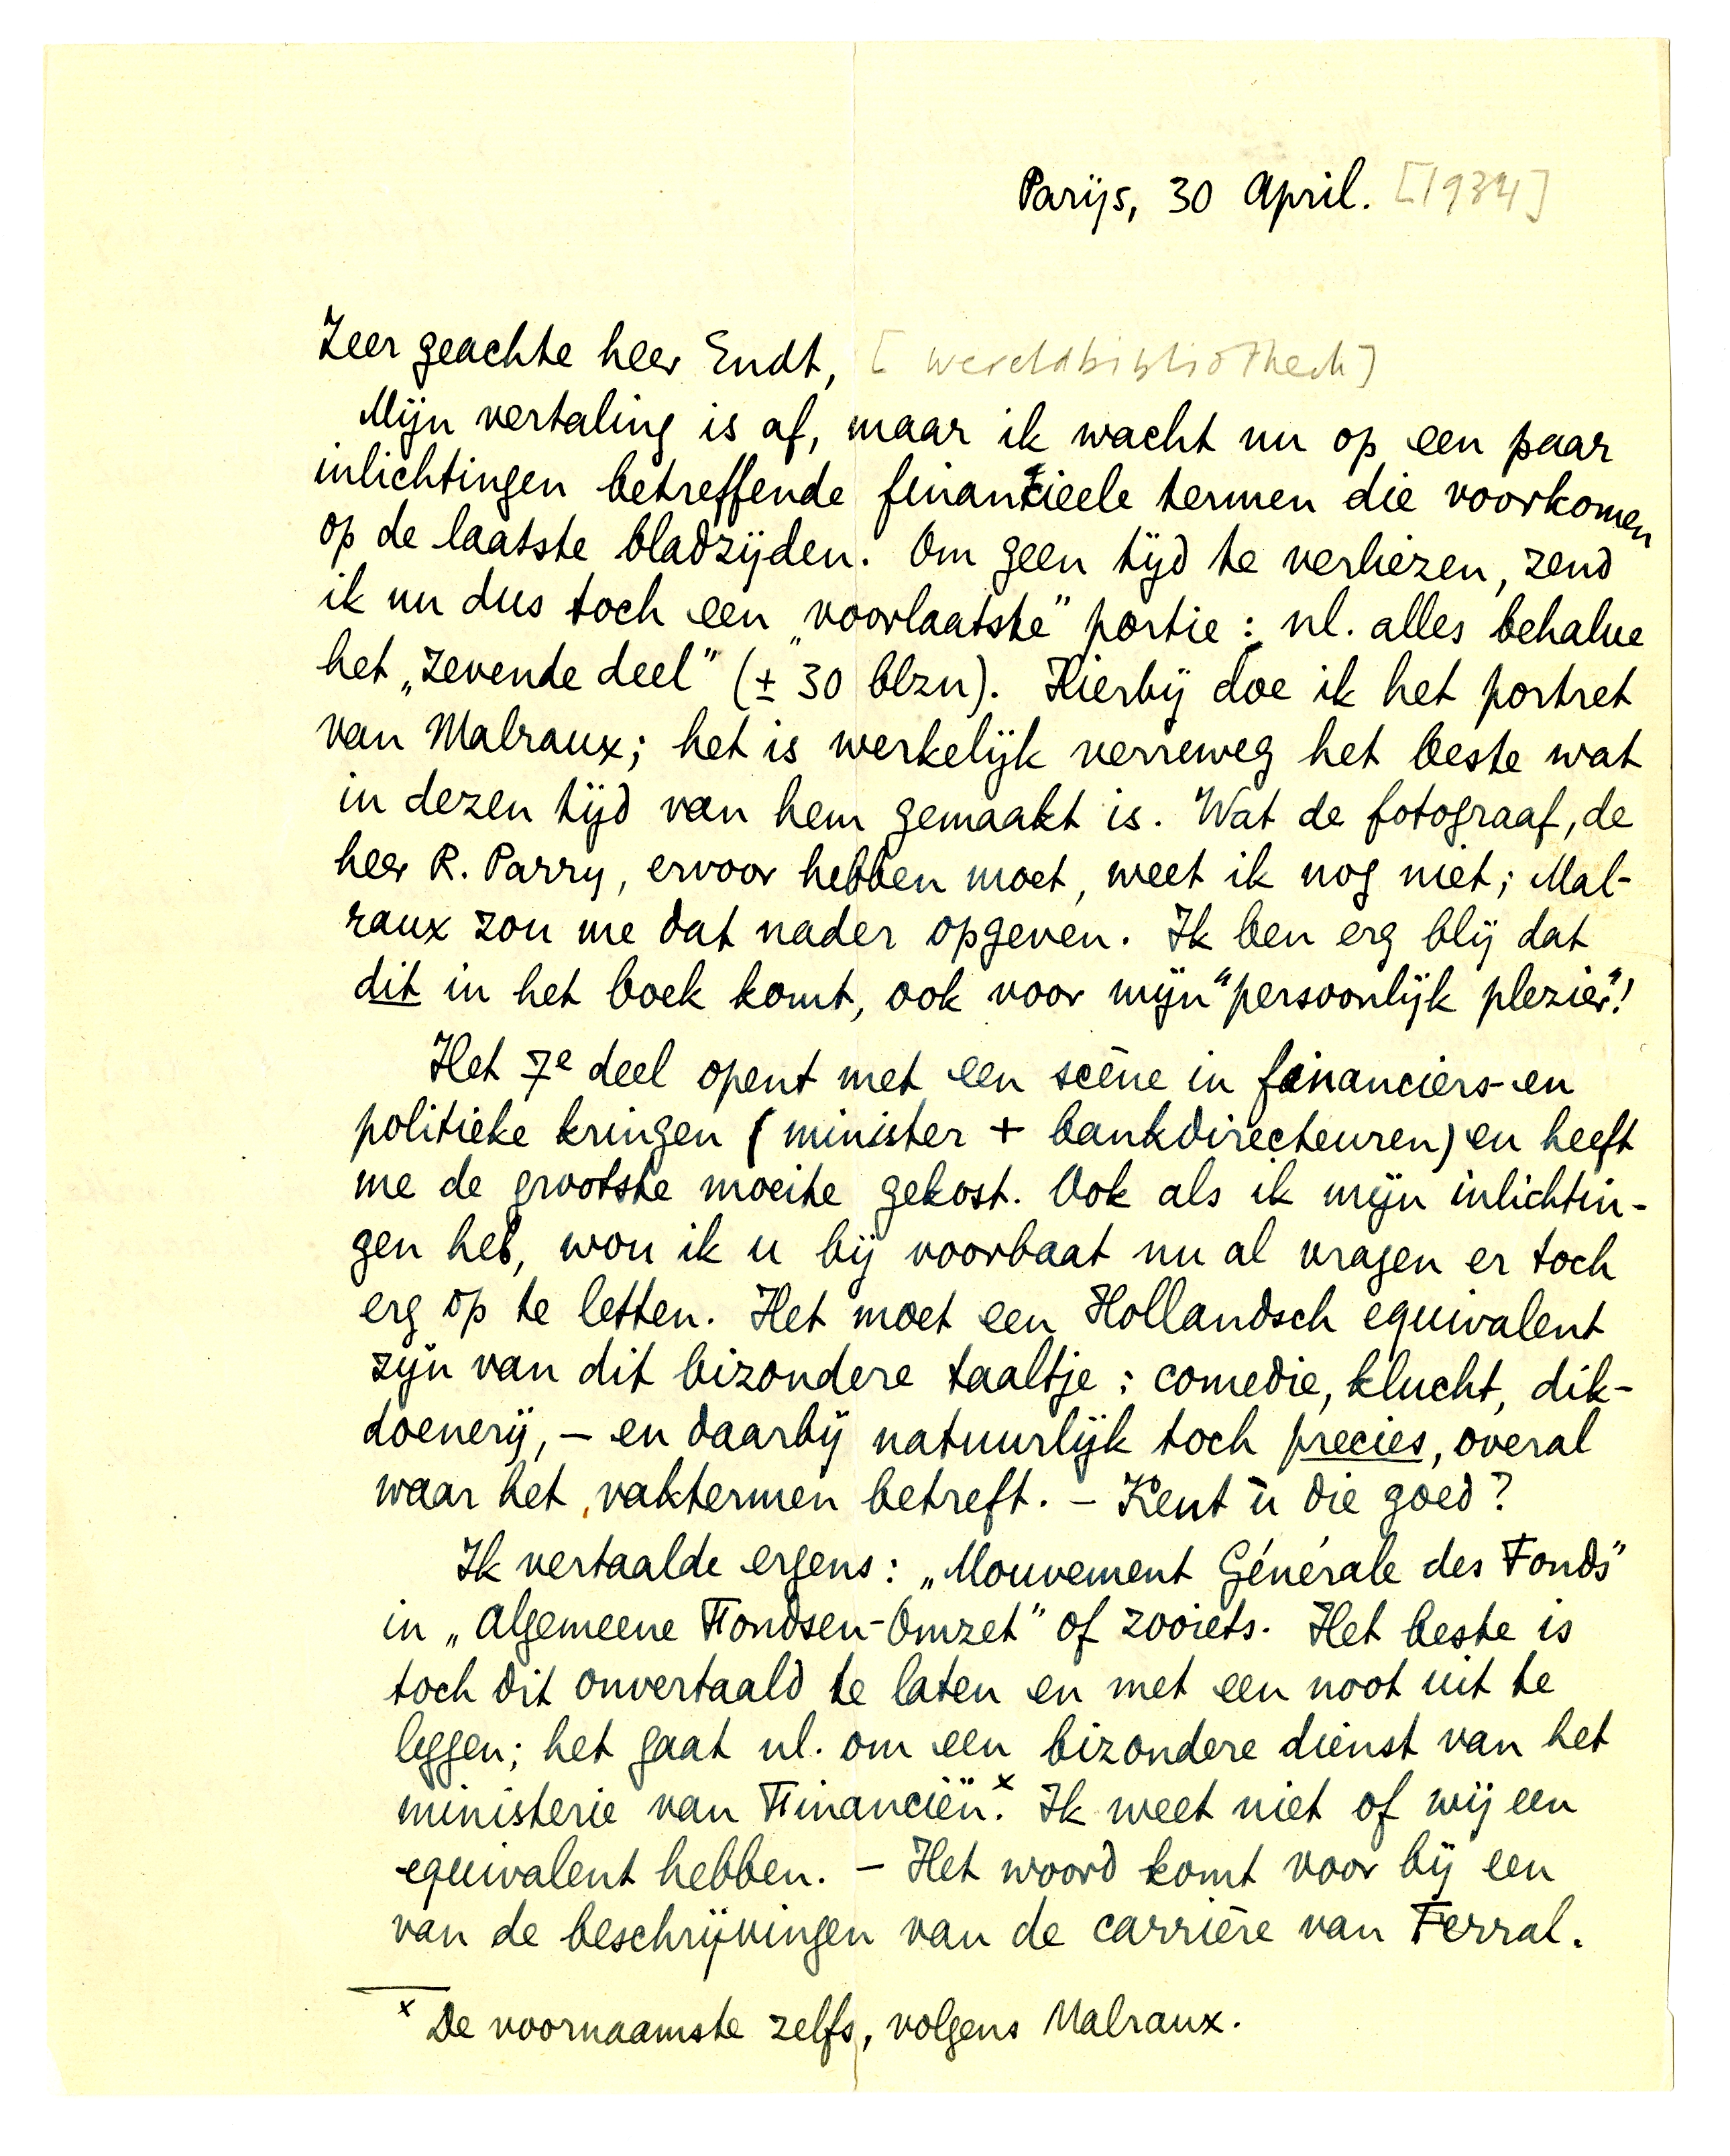 Parijs, 30 April. [1934]
Zeer geachte heer Endt, [Wereldbibliotheek]
Mijn vertaling is af, maar ik wacht nu op een paar
inlichtingen betreffende financieele termen die voorkomen
op de laatste bladzijden. Om geen tijd te verliezen, zend
ik nu dus toch een „voorlaatste” portie: nl. alles behalve
het „zevende deel” (± 30 blzn). Hierbij doe ik het portret
van Malraux; het is werkelijk verreweg het beste wat
in dezen tijd van hem gemaakt is. Wat de fotograaf, de
heer R. Parry, ervoor hebben moet, weet ik nog niet; Mal-
raux zou me dat nader opgeven. Ik ben erg blij dat
dit in het boek komt, ook voor mijn “persoonlijk plezier”!
Het 7e deel opent met een scène in financiers- en
politieke kringen (minister + bankdirecteuren) en heeft
me de grootste moeite gekost. Ook als ik mijn inlichtin-
gen heb, wou ik u bij voorbaat nu al vragen er toch
erg op te letten. Het moet een Hollandsch equivalent
zijn van dit bizondere taaltje: comedie, klucht, dik-
doenerij, – en daarbij natuurlijk toch precies, overal
waar het vaktermen betreft. – Kent ù die goed?
Ik vertaalde ergens: „Mouvement Générale des Fonds”
in „Algemeene Fondsen-Omzet” of zooiets. Het beste is
toch dit onvertaald te laten en met een noot uit te
leggen; het gaat nl. om een bizondere dienst van het
ministerie van Financiën.x Ik weet niet of wij een
equivalent hebben. – Het woord komt voor bij een
van de beschrijvingen van de carrière van Ferral.
x De voornaamste zelfs, volgens Malraux.